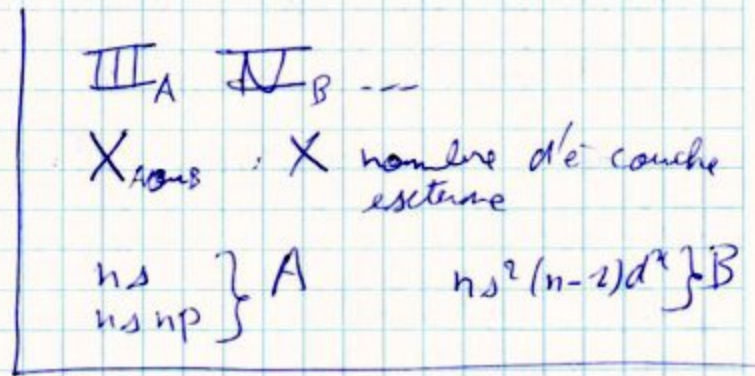 III_A IV_B ---
X_A ou B : X nombre d'e⁻ couche
externe
ns } A
ns np } A ns² (n-1)dˣ } B